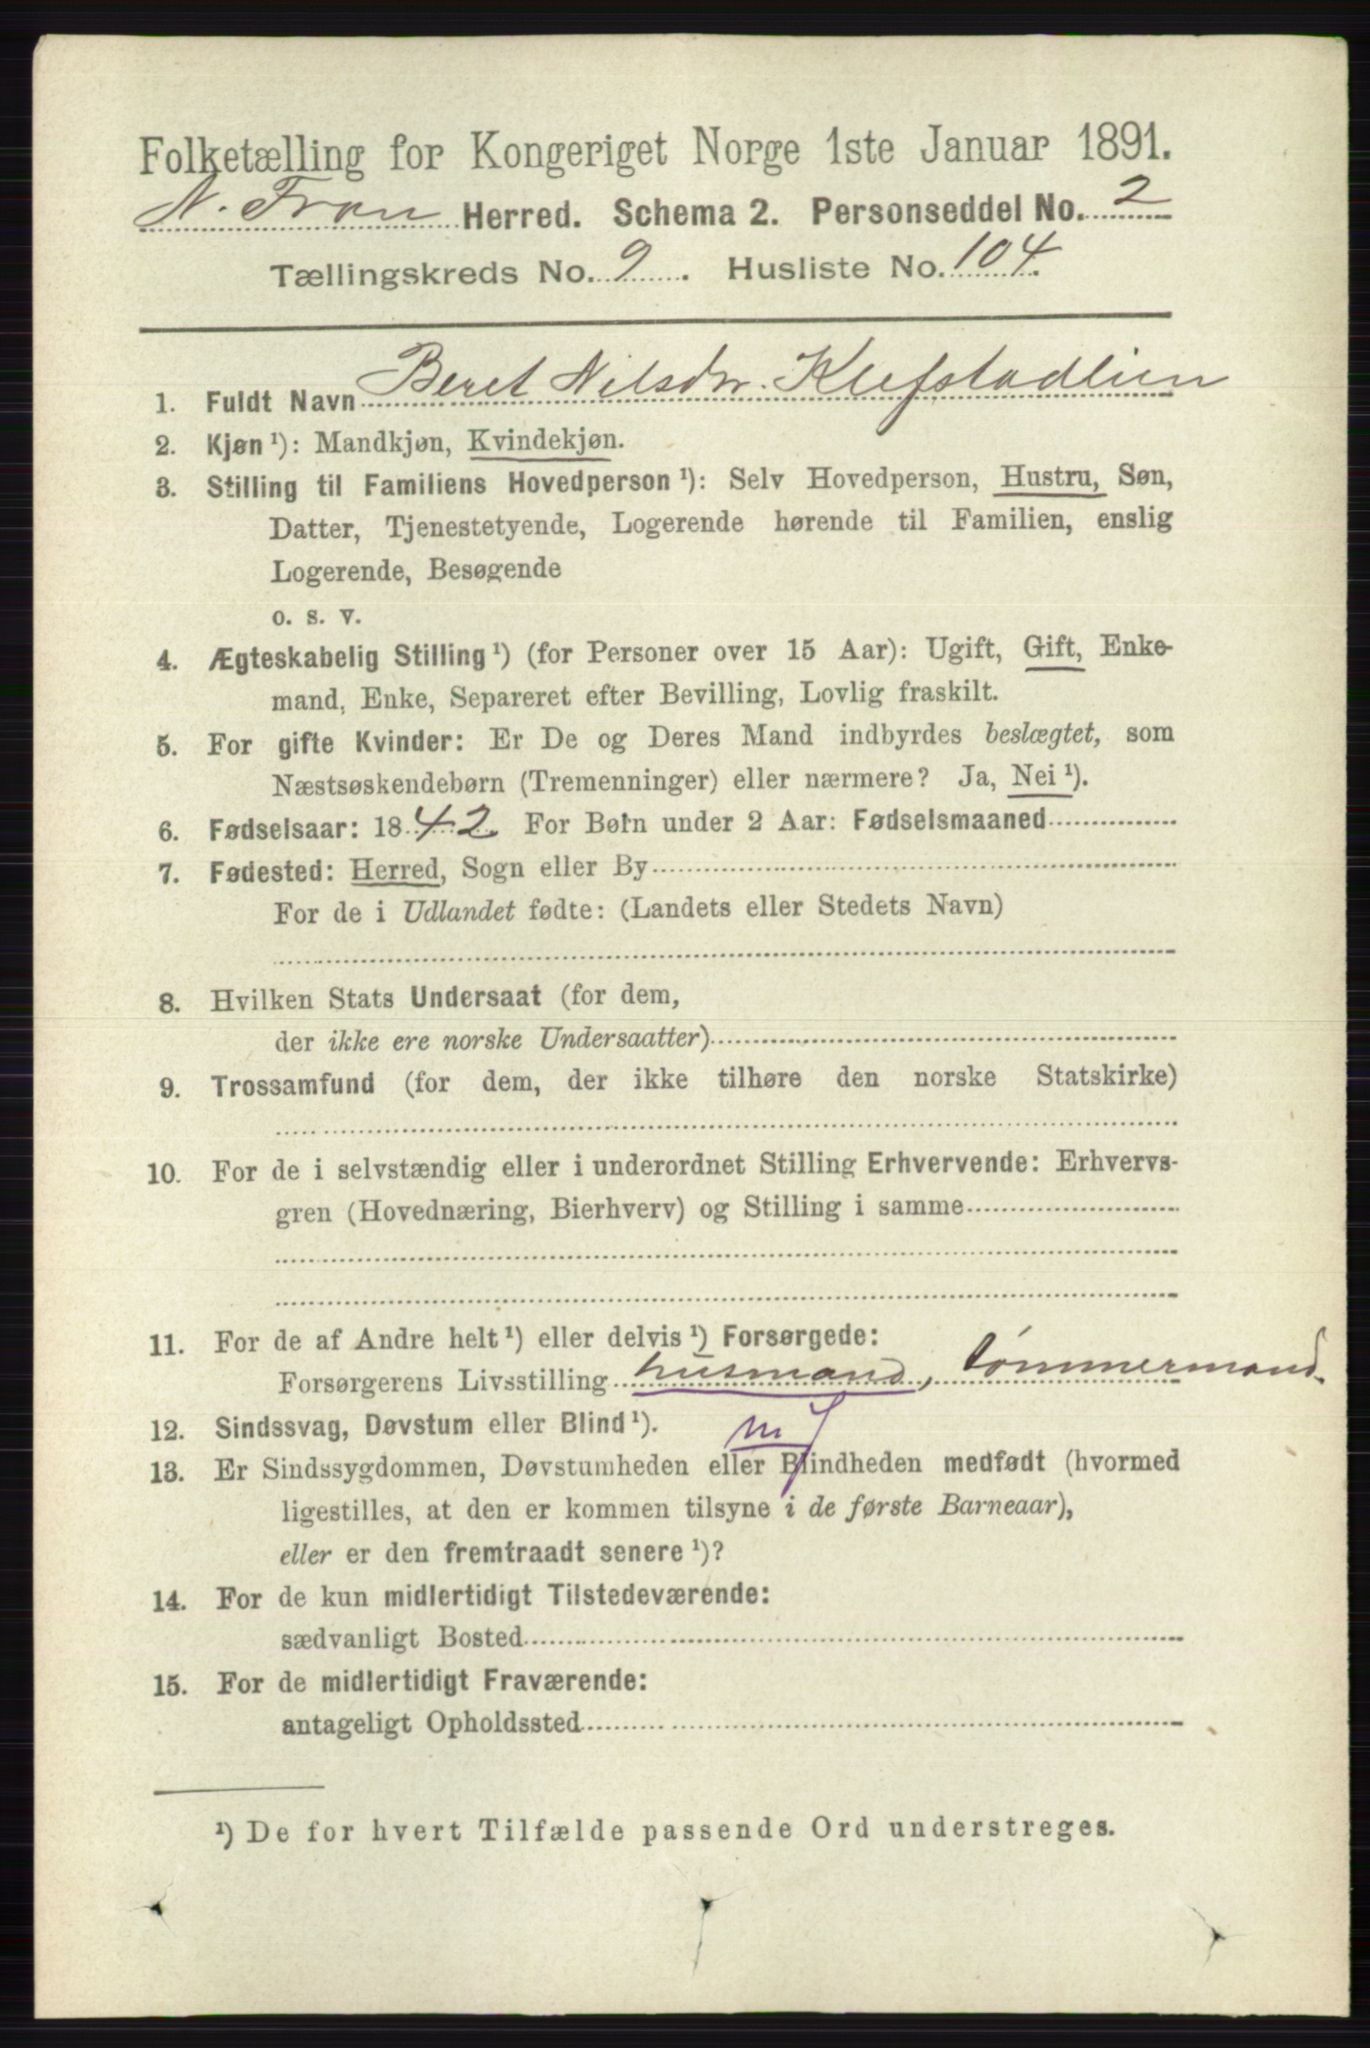 Folketælling for Kongeriget Norge 1ste Januar 1891.
N. Fron Herred. Schema 2. Personseddel No. 2
Tællingskreds No. 9. Husliste No. 104.
1. Fuldt Navn Beret Nilsdtr. Klefstadlien
2. Kjøn ¹): Mandkjøn, Kvindekjøn.
3. Stilling til Familiens Hovedperson ¹): Selv Hovedperson, Hustru, Søn,
Datter, Tjenestetyende, Logerende hørende til Familien, enslig
Logerende, Besøgende
o. s. v.
4. Ægteskabelig Stilling ¹) (for Personer over 15 Aar): Ugift, Gift, Enke-
mand, Enke, Separeret efter Bevilling, Lovlig fraskilt.
5. For gifte Kvinder: Er De og Deres Mand indbyrdes beslægtet, som
Næstsøskendebørn (Tremenninger) eller nærmere? Ja, Nei ¹).
6. Fødselsaar: 1842. For Børn under 2 Aar: Fødselsmaaned
7. Fødested: Herred, Sogn eller By
For de i Udlandet fødte: (Landets eller Stedets Navn)
8. Hvilken Stats Undersaat (for dem,
der ikke ere norske Undersaatter)
9. Trossamfund (for dem, der ikke tilhøre den norske Statskirke)
10. For de i selvstændig eller i underordnet Stilling Erhvervende: Erhvervs-
gren (Hovednæring, Bierhverv) og Stilling i samme
11. For de af Andre helt ¹) eller delvis ¹) Forsørgede:
Forsørgerens Livsstilling husmand, tømmermand.
12. Sindssvag, Døvstum eller Blind ¹).
13. Er Sindssygdommen, Døvstumheden eller Blindheden medfødt (hvormed
ligestilles, at den er kommen tilsyne i de første Barneaar),
eller er den fremtraadt senere ¹)?
14. For de kun midlertidigt Tilstedeværende:
sædvanligt Bosted
15. For de midlertidigt Fraværende:
antageligt Opholdssted
¹) De for hvert Tilfælde passende Ord understreges.